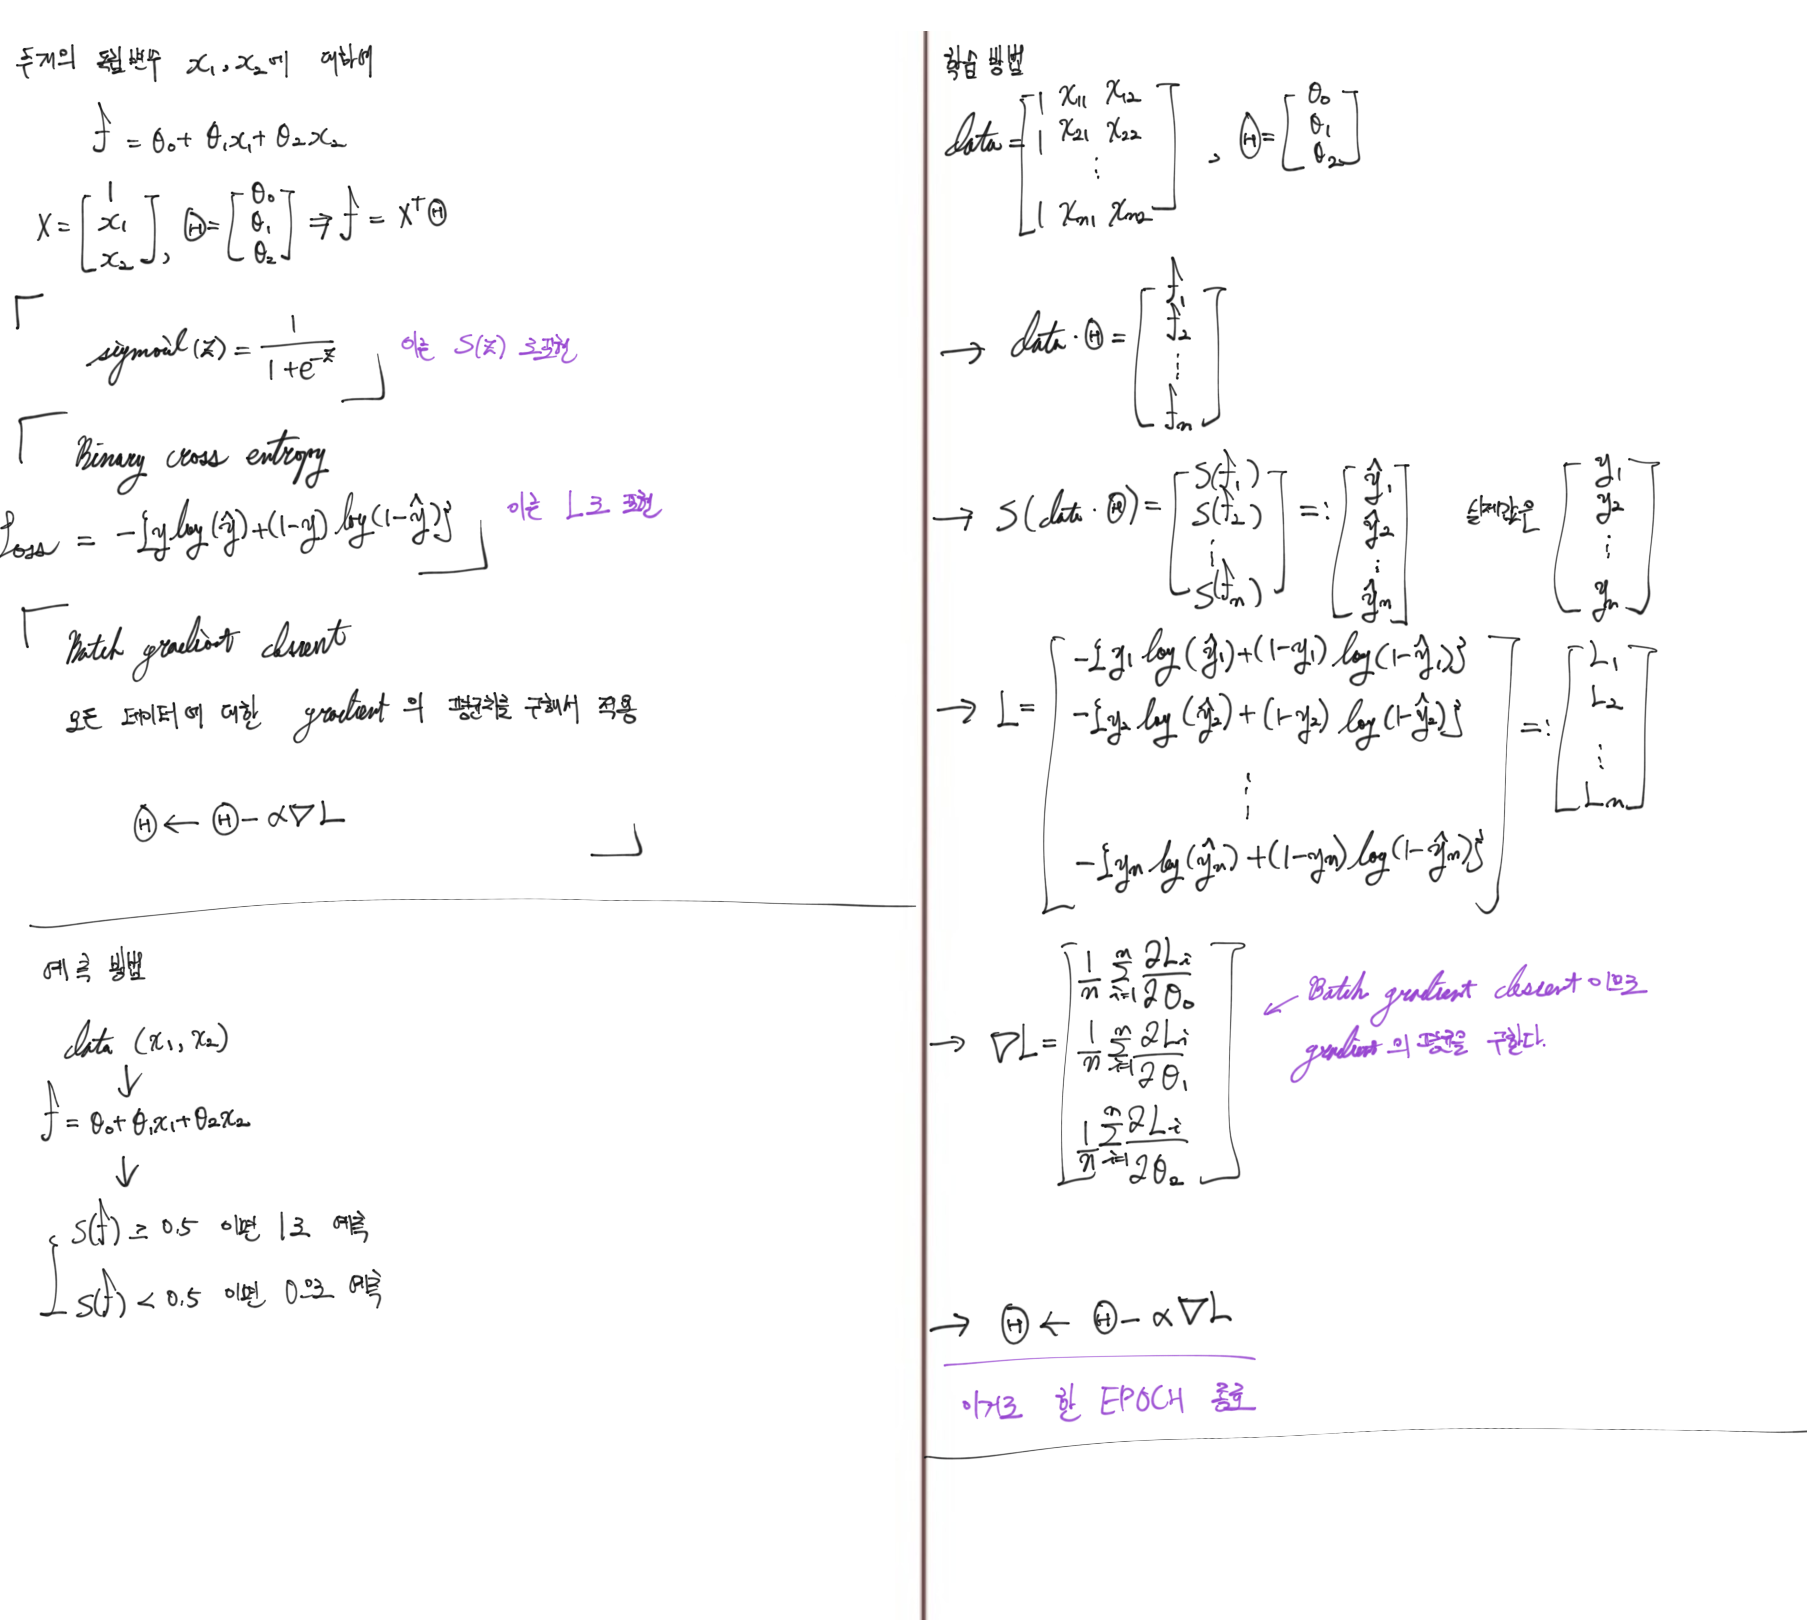 두개의 독립변수 x₁, x₂에 대하여
f = θ₀ + θ₁x₁ + θ₂x₂
X = [1 x₁ x₂], Θ = [θ₀ θ₁ θ₂] ⇒ f = XᵀΘ
sigmoid(z) = 1 / (1 + e^-z) 이를 S(z)로 표현
Binary cross entropy
Loss = -{y log(ŷ) + (1-y) log(1-ŷ)} 이를 L로 표현
Batch gradient descent
모든 데이터에 대한 gradient의 평균치를 구해서 적용
Θ ← Θ - α∇L
예측 방법
data (x₁, x₂)
↓
f = θ₀ + θ₁x₁ + θ₂x₂
↓
S(f) ≥ 0.5 이면 1로 예측
S(f) < 0.5 이면 0으로 예측
학습 방법
data = [1 x₁₁ x₁₂
1 x₂₁ x₂₂
⋮
1 xₙ₁ xₙ₂], Θ = [θ₀ θ₁ θ₂]
→ data · Θ = [f₁ f₂ ⋮ fₙ]
→ S(data · Θ) = [S(f₁) S(f₂) ⋮ S(fₙ)] =: [ŷ₁ ŷ₂ ⋮ ŷₙ] 실제값은 [y₁ y₂ ⋮ yₙ]
→ L = [-{y₁ log(ŷ₁) + (1-y₁) log(1-ŷ₁)}
-{y₂ log(ŷ₂) + (1-y₂) log(1-ŷ₂)}
⋮
-{yₙ log(ŷₙ) + (1-yₙ) log(1-ŷₙ)}] =: [L₁ L₂ ⋮ Lₙ]
→ ∇L = [1/n Σᵢ₌₁ⁿ ∂Lᵢ/∂θ₀
1/n Σᵢ₌₁ⁿ ∂Lᵢ/∂θ₁
1/n Σᵢ₌₁ⁿ ∂Lᵢ/∂θ₂]
← Batch gradient descent 이므로
gradient의 평균을 구한다.
→ Θ ← Θ - α∇L
이거로 한 EPOCH 종료